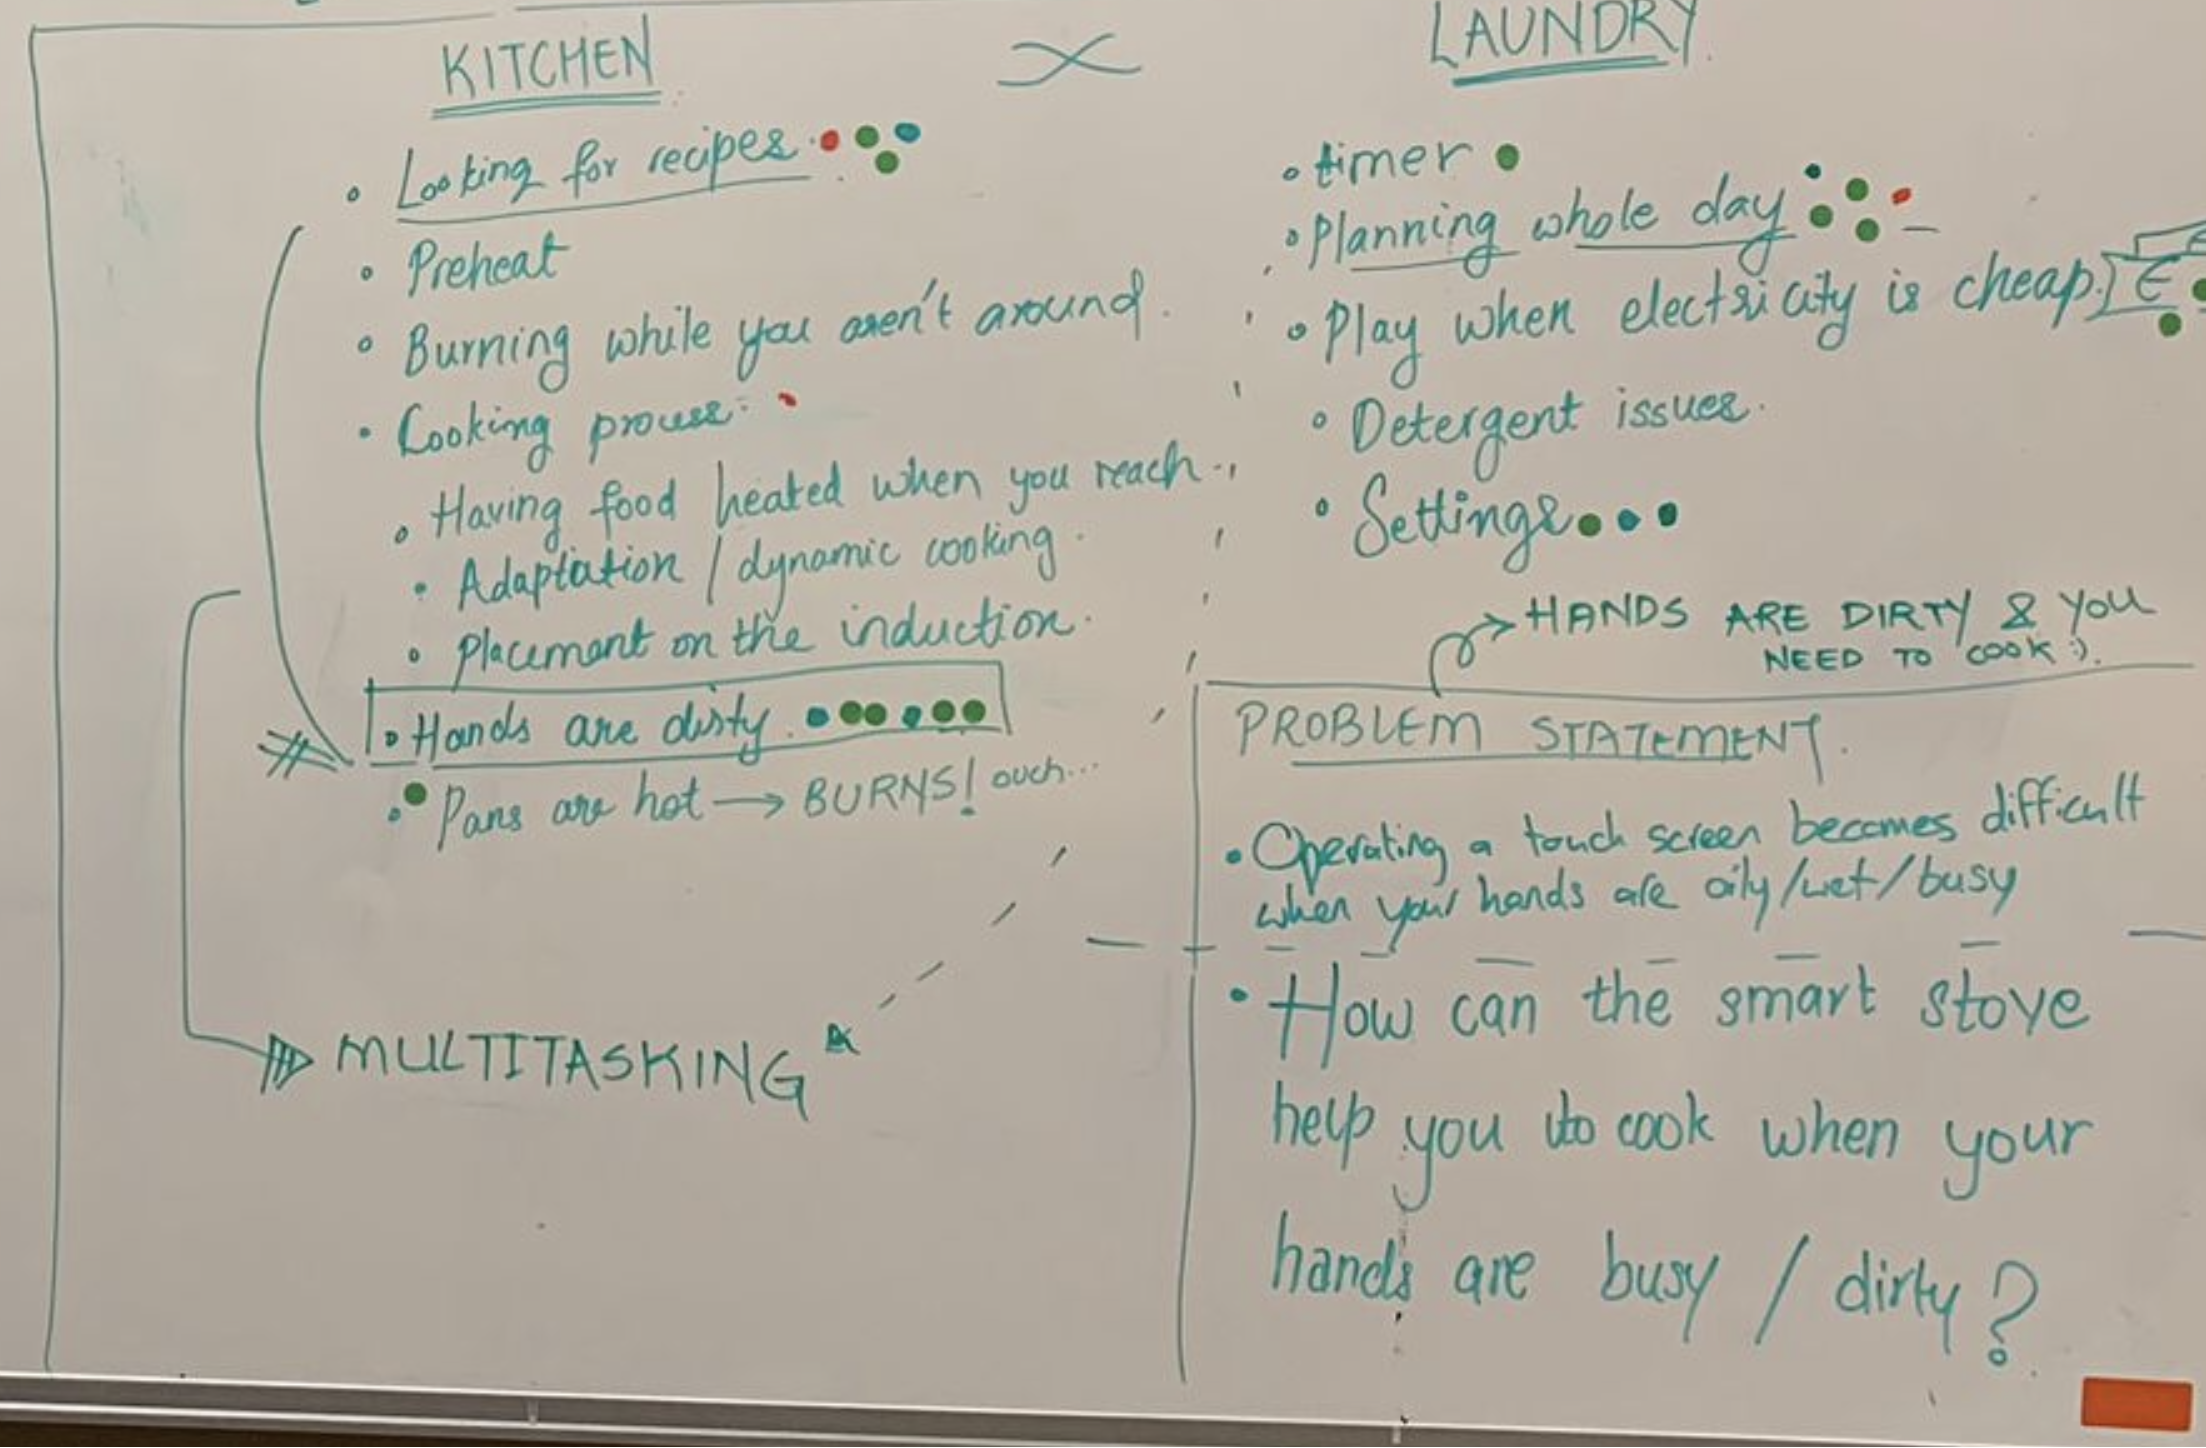 KITCHEN
Looking for recipes
Preheat
Burning while you aren't around.
Cooking process
Having food heated when you reach
Adaptation / dynamic cooking
Placement on the induction.
Hands are dirty
Pans are hot → BURNS! ouch...
MULTITASKING
LAUNDRY
timer
Planning whole day
Play when electricity is cheap. €
Detergent issues.
Settings
HANDS ARE DIRTY & YOU
NEED TO COOK :).
PROBLEM STATEMENT.
Operating a touch screen becomes difficult
when your hands are oily/wet/busy
How can the smart stove
help you to cook when your
hands are busy / dirty?